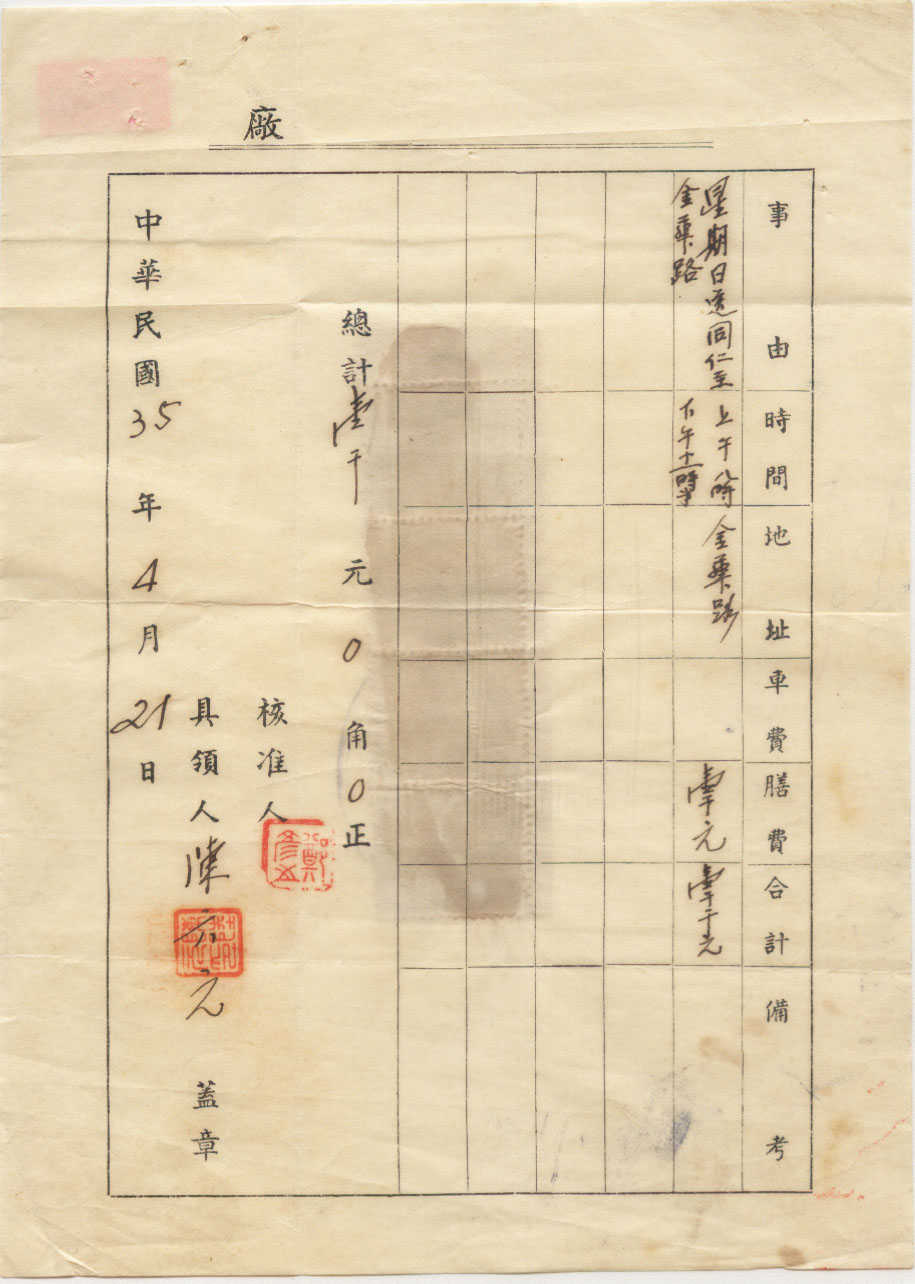 廠
事由
時間
地址
車費
膳費
合計
備考
星期日送同仁至
金華路
上午八時
下午十一時半
金華路
壹千元
壹千元
總計壹千元0角0正
核准人
鄭彦
具領人陳宏元蓋章
中華民國35年4月21日